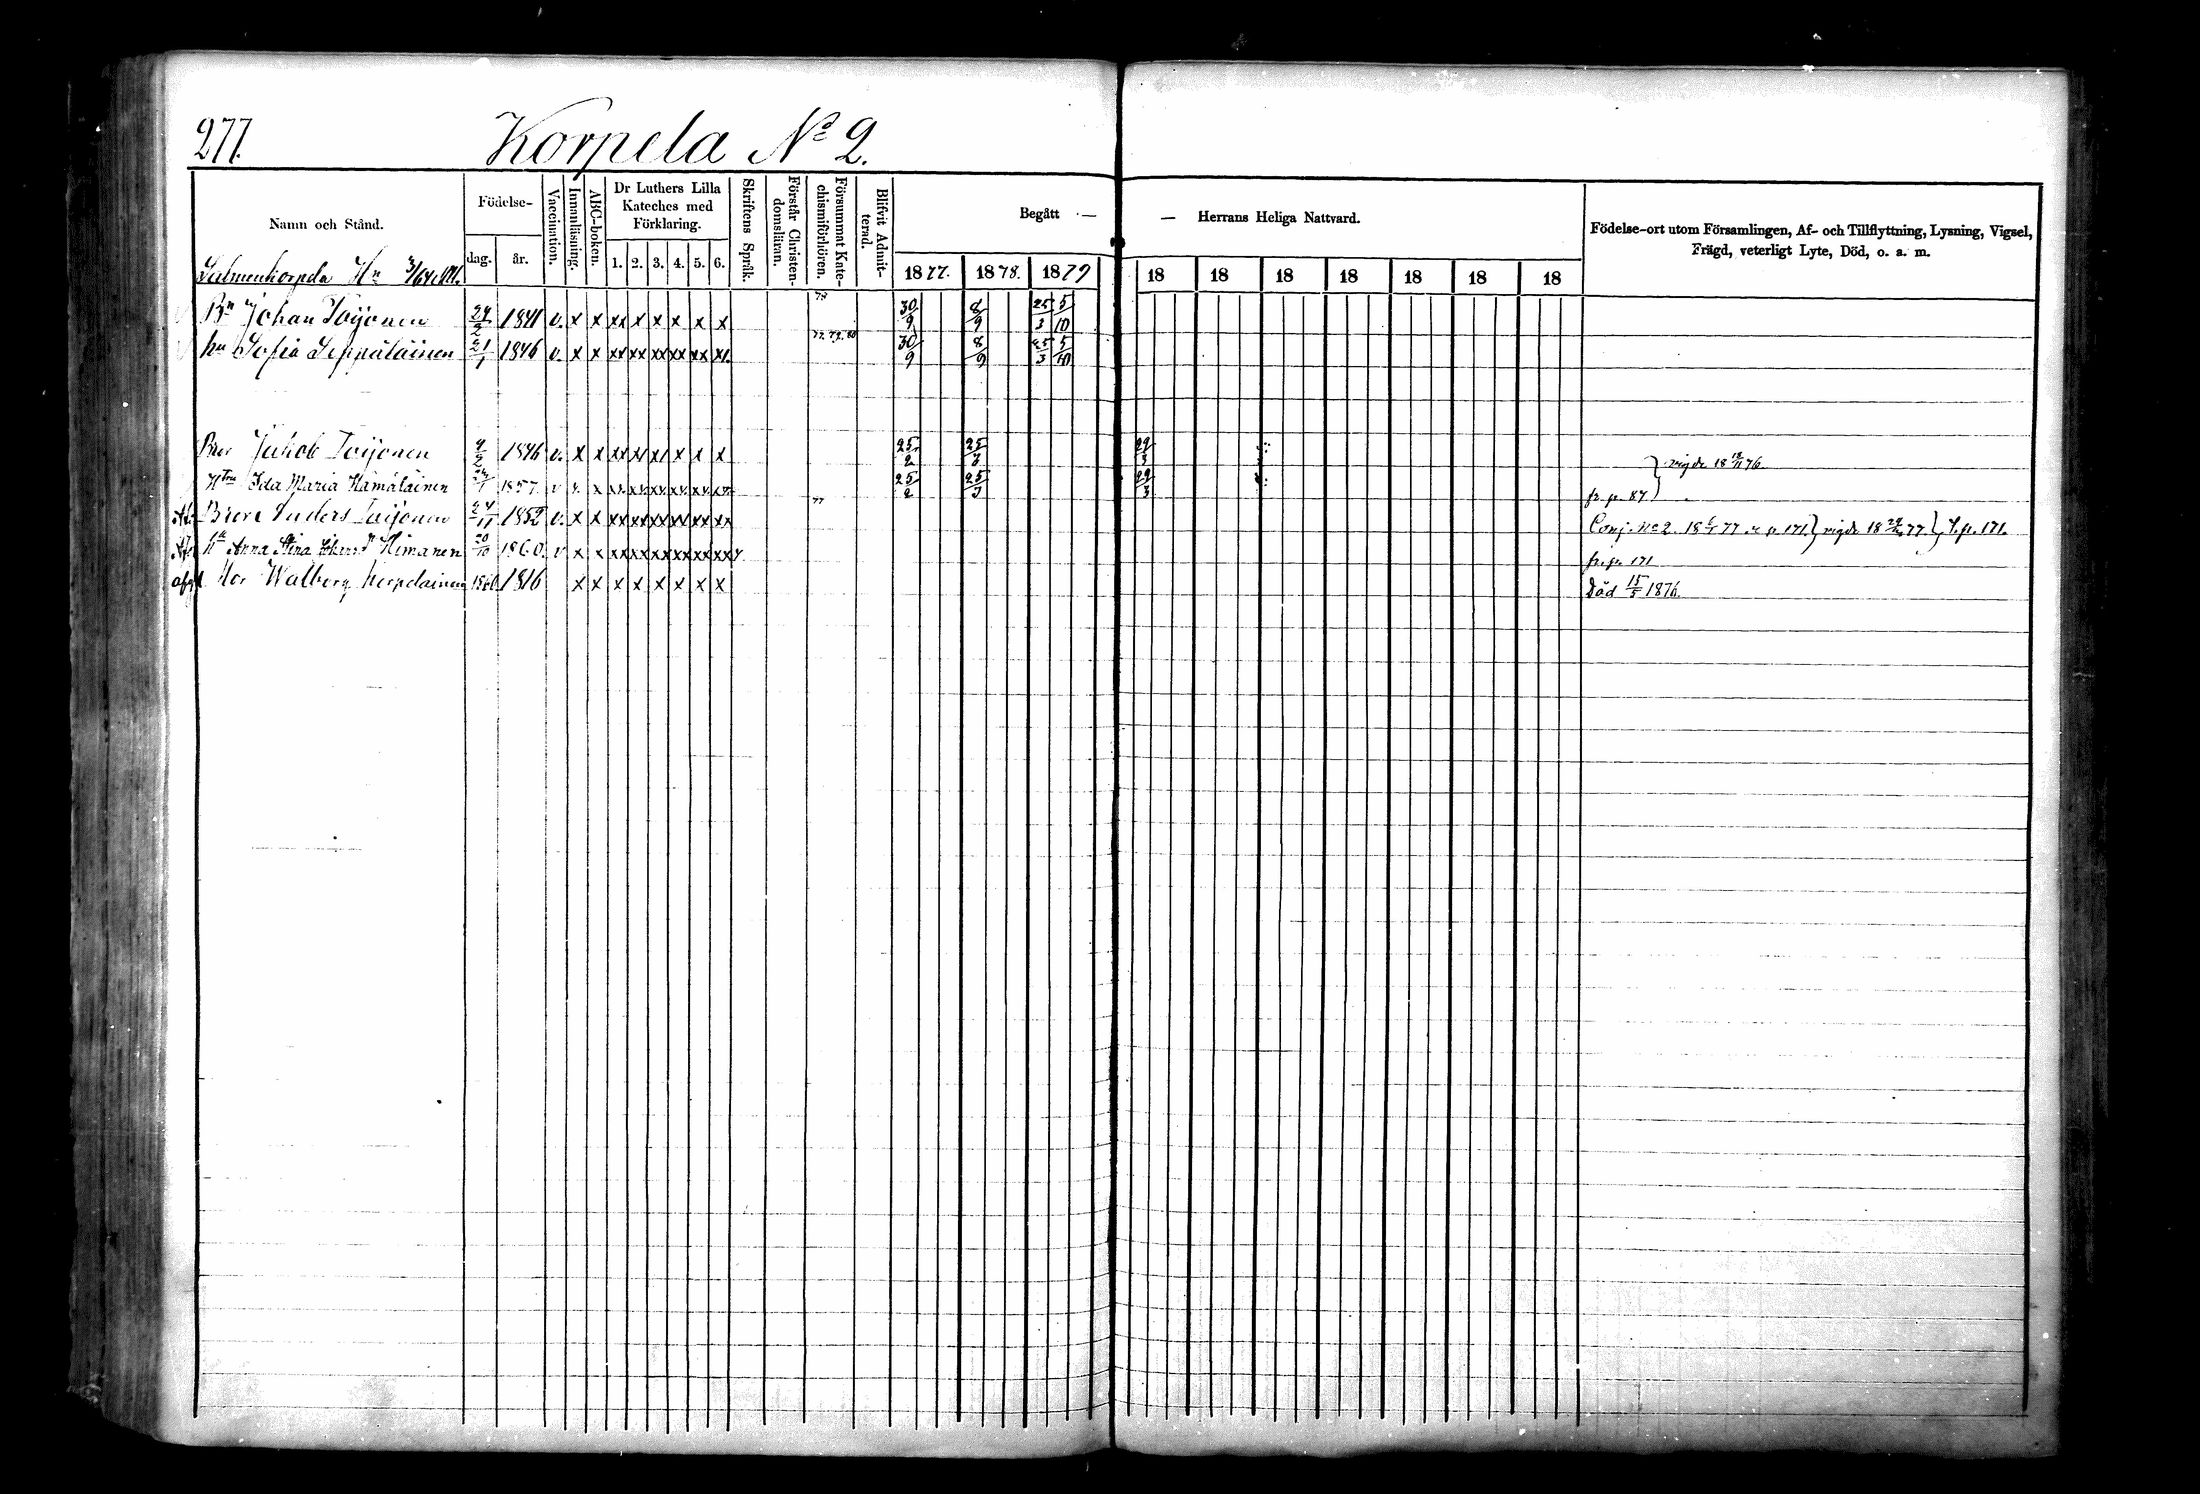 277.
Korpela No 2.
Namn och Stånd.
Födelse-
dag.
år.
Vaccination.
Innanläsning.
ABC-boken.
Dr Luthers Lilla Kateches med Förklaring.
1. 2. 3. 4. 5. 6.
Skriftens Språk.
Förstår Christendomsläran.
Försummat Katechismiförhören.
Blifvit Admitterad.
Begått — — Herrans Heliga Nattvard.
1877. 1878. 1879 18 18 18 18 18 18 18
Födelse-ort utom Församlingen, Af- och Tillflyttning, Lysning, Vigsel,
Frägd, veterligt Lyte, Död, o. a. m.
Salmenkorpela Hn
Bn Johan Toijonen 24/2 1841 v. x x xx x x x x x 78 30/9 8/9 25/3 5/10
hu Sofia Seppäläinen 21/1 1846 v. x x xx xx xx xx xx x 77. 79. 80 30/9 8/9 25/3 5/10
Bror Jakob Toijonen 9/2 1846 v. x x xx x x x x x 25/2 25/3 29/3 vigde 18 18/11 76.
Htru Ida Maria Hämäläinen 1857. v x x xx xx xx xx xx xx 25/2 25/3 29/3 fr. p. 87
Bror Anders Toijonen 24/11 1852 v. x x xx xx xx xx xx xx 77 Conj. No 2. 18 77 p. 171. vigde 18 77. T. p. 171.
Anna Stina Himanen 20/10 1860. v x x xx xx xx xx xx xx fr. p. 171
Mor Walborg Korpelainen 1816 x x x x x x x x Död 15/5 1876.